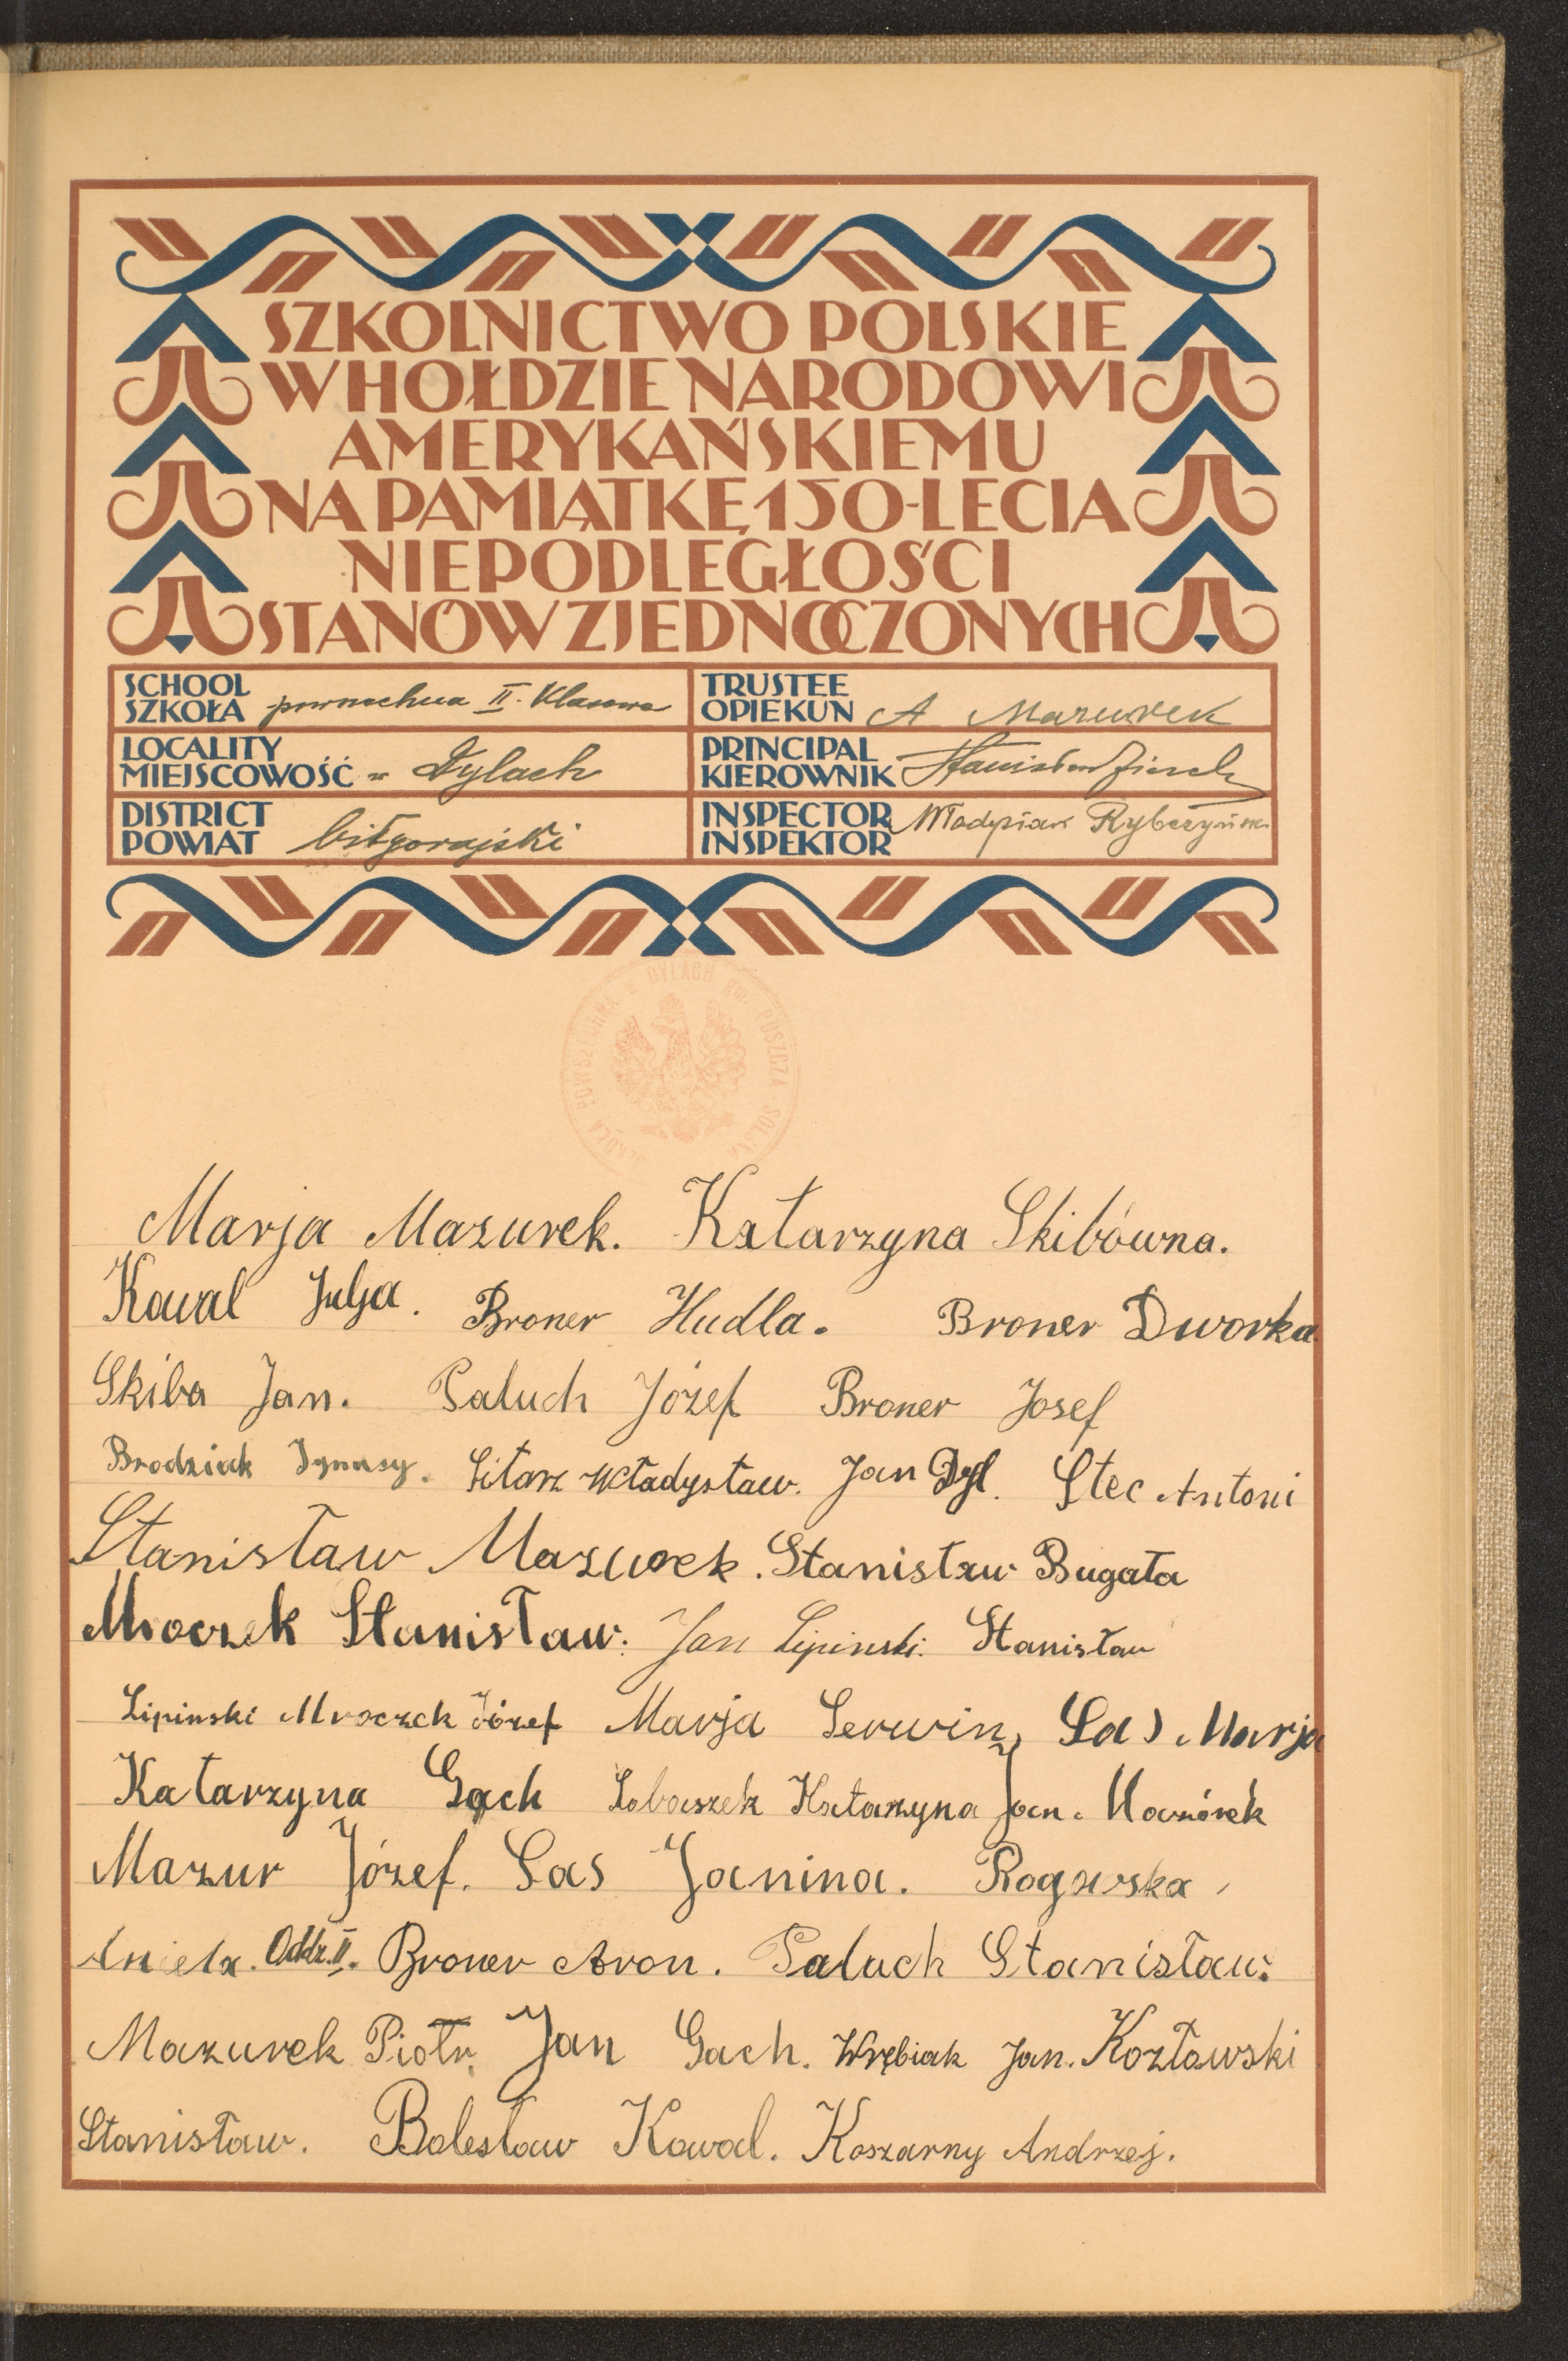 SZKOLNICTWO POLSKIE
W HOŁDZIE NARODOWI
AMERYKAŃSKIEMU
NA PAMIĄTKĘ 150-LECIA
NIEPODLEGŁOŚCI
STANÓW ZJEDNOCZONYCH
SCHOOL
SZKOŁA powszechna II. Klasowa
TRUSTEE
OPIEKUN A Mazurek
LOCALITY
MIEJSCOWOŚĆ w Dylach
PRINCIPAL
KIEROWNIK Stanisław
DISTRICT
POWIAT biłgorajski
INSPECTOR
INSPEKTOR Władysław Rybczyński
SZKOŁA POWSZECHNA w DYLACH gm. PUSZCZA-SOLSKA
Marja Mazurek. Katarzyna Skibówna.
Kowal Julja. Broner Hudla. Broner Dworka.
Skiba Jan. Paluch Józef Broner Josef
Brodziak Ignasy. Sitarz Władysław. Jan Dyl. Stec Antoni
Stanisław Mazurek. Stanisław Bugała
Mroczek Stanisław. Jan Lipinski. Stanisław
Lipinski Mroczek Józef Marja Serwin, Las Marja
Katarzyna Gach Łobaszek Katarzyna Jan.
Mazur Józef. Las Janina. Rogowska
Aniela. Oddz. II. Broner Aron. Paluch Stanisław.
Mazurek Piotr. Jan Gach. Wrębiak Jan. Kozłowski
Stanisław. Bolesław Kowal. Koszarny Andrzej.